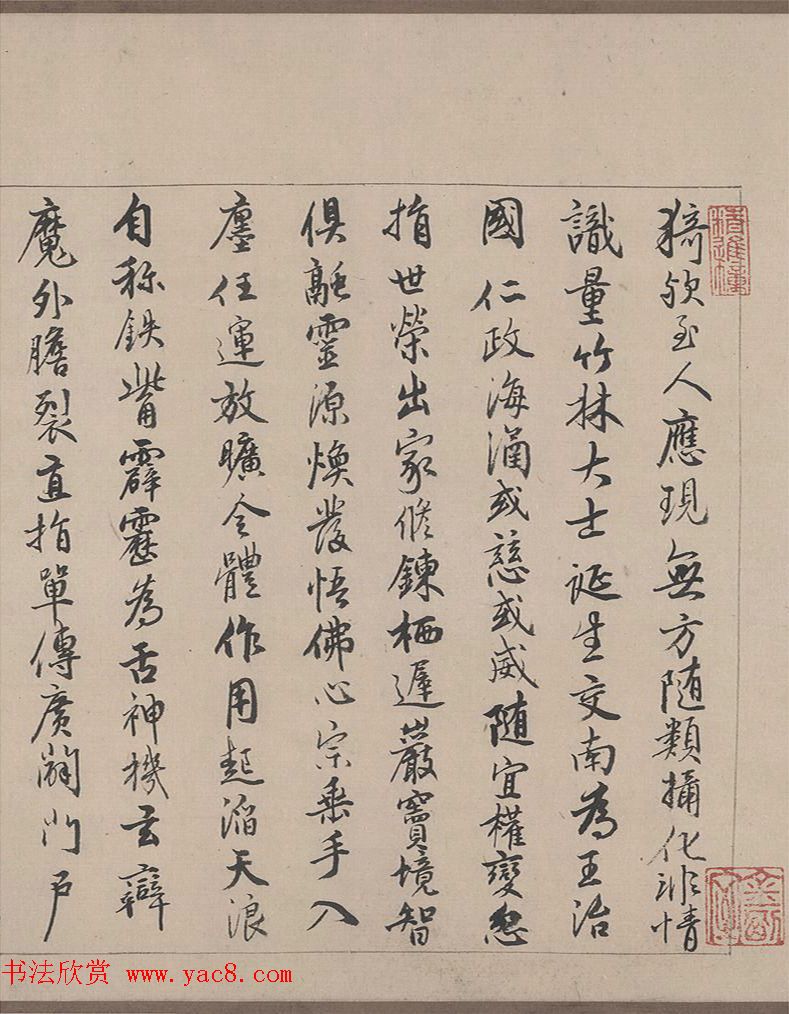 猗欤至人應現無方随類攝化非情
識量竹林大士誕生交南為王治
國仁政海涵或慈或威随宜權變忽
捐世榮出家修鍊栖遲巖竇境智
俱融靈源煥發悟佛心宗垂手入
廛任運放曠全體作用起滔天浪
自称鉄觜霹靂為舌神機玄辯
魔外膽裂直指單傳廣闢門戶
书法欣赏 www.yac8.com